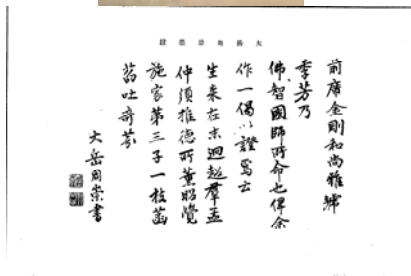 大岳周崇墨蹟
前席金剛和尚雅號
季芳乃
佛智國師所命也俾余
作一偈以證焉云
生來在末迥超羣孟
仲須推德所薫昭覺
施家第三子一枝菡
萏吐奇芬
大岳周崇書